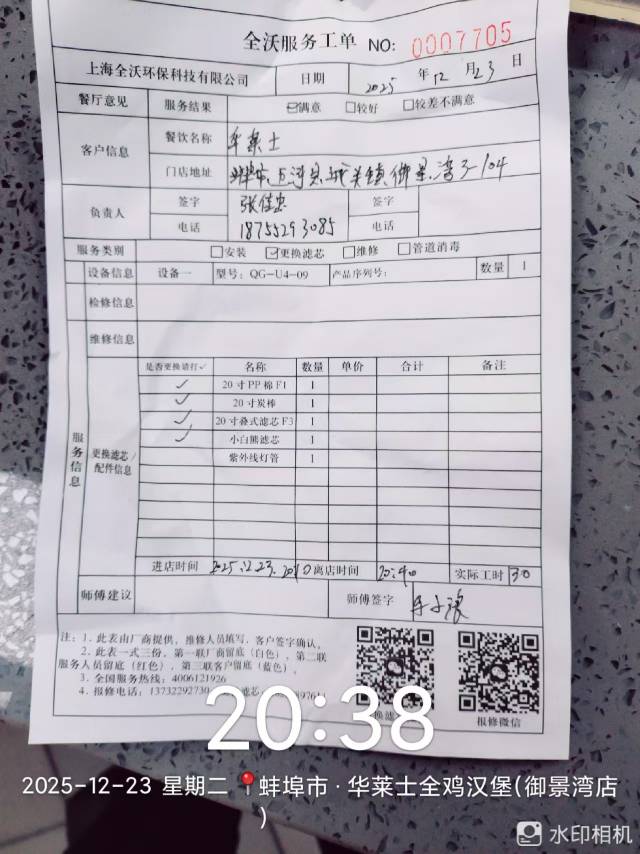 全沃服务工单 NO: 0007705
上海全沃环保科技有限公司 日期 2025年12月23日
餐厅意见 服务结果 ☑满意 □较好 □较差不满意
客户信息 餐饮名称 华莱士
门店地址 蚌埠市上河县城关镇御景湾3-104
负责人 签字 张佳忠 签字
电话 18755293085 电话
服务类别 □安装 ☑更换滤芯 □维修 □管道消毒
设备信息 设备一 型号: QG-U4-09 产品序列号: 数量 1
检修信息
维修信息
服务信息
更换滤芯/配件信息
是否更换请打✓ 名称 数量 单价 合计 备注
✓ 20寸PP棉F1 1
✓ 20寸炭棒 1
✓ 20寸叠式滤芯F3 1
✓ 小白熊滤芯 1
紫外线灯管 1
进店时间 2025.12.23.20:10 离店时间 20:40 实际工时 30
师傅建议 师傅签字
注: 1. 此表由厂商提供, 维修人员填写, 客户签字确认。
2. 此表一式三份, 第一联厂商留底(白色), 第二联
服务人员留底(红色), 第三联客户留底(蓝色)。
3. 全国服务热线: 4006121926
4. 报修电话: 13732292730
报修微信
20:38
2025-12-23 星期二 蚌埠市·华莱士全鸡汉堡(御景湾店
)
水印相机